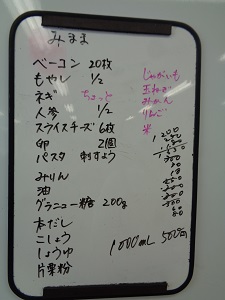 みまま
ベーコン 20枚
もやし 1/2
ネギ ちょっと
人参 1/2
スライスチーズ 6枚
卵 2個
パスタ
みりん
油
グラニュー糖 200g
本だし
こしょう
しょうゆ
片栗粉
じゃがいも
玉ねぎ
みかん
りんご
米
1000mL 500g